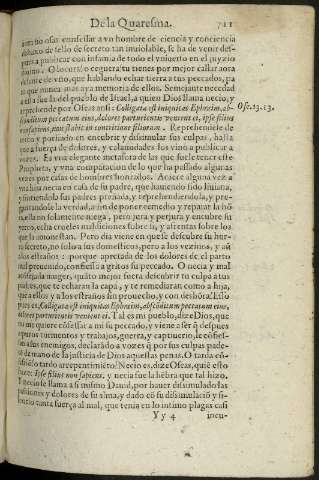 De la Quaresma. 711
ra no osar confessar a vn hombre de ciencia y conciencia
debaxo de sello de secreto tan inuiolable, se ha de venir des-
pues a publicar con infamia de todo el vniuerso en el juyzio
O locura! o ceguera! tu tienes por mejor callar aora
de vino, que hablando echar tierra a tus pecados, pa
ra que nunca mas aya memoria de ellos. Semejante necedad
a esta fue la del pueblo de Israel, a quien Dios llama necio, y
reprehende por Oseas assi: Colligata est iniquitas Ephraim, ab- Ose. 13. 13.
sconditum peccatum eius, dolores parturientis venient ei, ipse filius
non sapiens, non stabit in contritione filiorum. Reprehendele de
necio y porfiado en encubrir y dissimular sus culpas, hasta
que a fuerça de dolores, y calamidades los vino a publicar a
vozes. Es vna elegante metafora de las que suele tener este
Propheta, y vna comparacion de lo que ha passado algunas
vezes por casas de hombres honrados. Acaece alguna vez a
vna hija necia en casa de su padre, que hauiendo sido liuiana,
y sintiendola sus padres preñada, y reprehendiendola, y pre-
guntandole la verdad, a fin de poner remedio y reparar la hõ
ra, ella no solamente niega, pero jura y perjura y encubre su
yerro, echa crueles maldiciones sobre si, y afrentas sobre los
que la amonestan. Pero dia viene en que se descubre su hur-
to secreto, no solo a sus domesticos, pero a los vezinos, y aũ
a los estraños: porque apretada de los dolores de el parto
mal preuenido, confiessa a gritos su pecado. O necia y mal
aconsejada muger, quãto mejor fuera descubrir tu culpa a tus
padres, que te echaran la capa, y te remediaran como a hija,
que a ellos y a los estraños sin prouecho, y con deshõra! Esso
pues es, Colligata est iniquitas Ephraim, absconditum peccatum eius,
dolores parturientis venient ei. Tal es mi pueblo, dize Dios, que
no me quiere cõfessar a mi su pecado, y viene a ser q̃ despues
apuros tormentos y trabajos, guerra, y captiuerio, le cõfies-
sa a sus enemigos, declarãdo a vozes q̃ por sus culpas pade-
ce de mano de la justicia de Dios aquestas penas. O tarda cõ-
fessiõ! o tardo arrepentimiẽto! Necio es, dize Oseas, quiẽ esto
haze: Ipse filius non sapiens, y necia fue la hẽbra que tal hizo.
Y necio se llama a si mismo Dauid, por hauer dissimulado las
passiones y dolores de su alma, y dado cõ su dissimulaciõ y si-
lencio tanta fuerça al mal, que tenia en lo intimo plagas casi
Y y 4 incu-